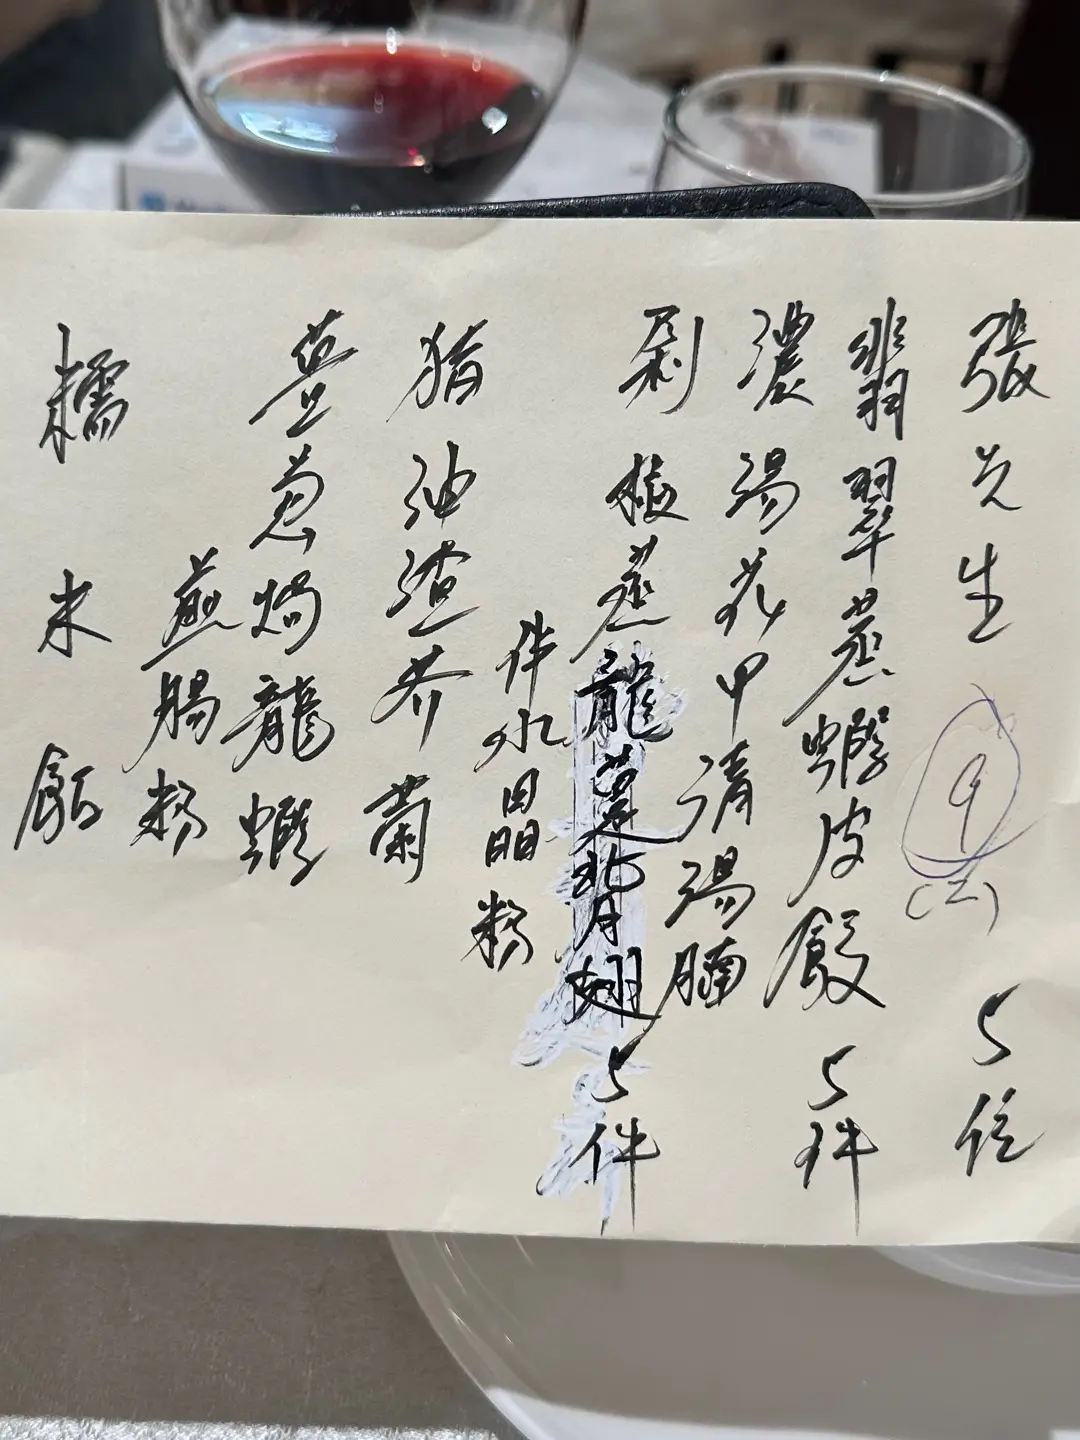 張先生 5位
9
(二)
翡翠蒸蝦皮餃 5件
濃湯花甲清湯腩
剁椒蒸龍躉背翅 5件
伴水晶粉
豬油渣芥蘭
薑蔥焗龍蝦
煎腸粉
糯米飯